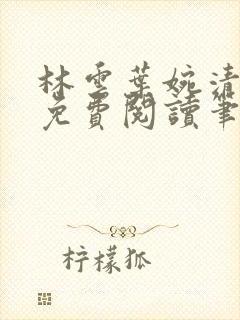 林雲葉婉清
免費閱讀筆
柠檬狐